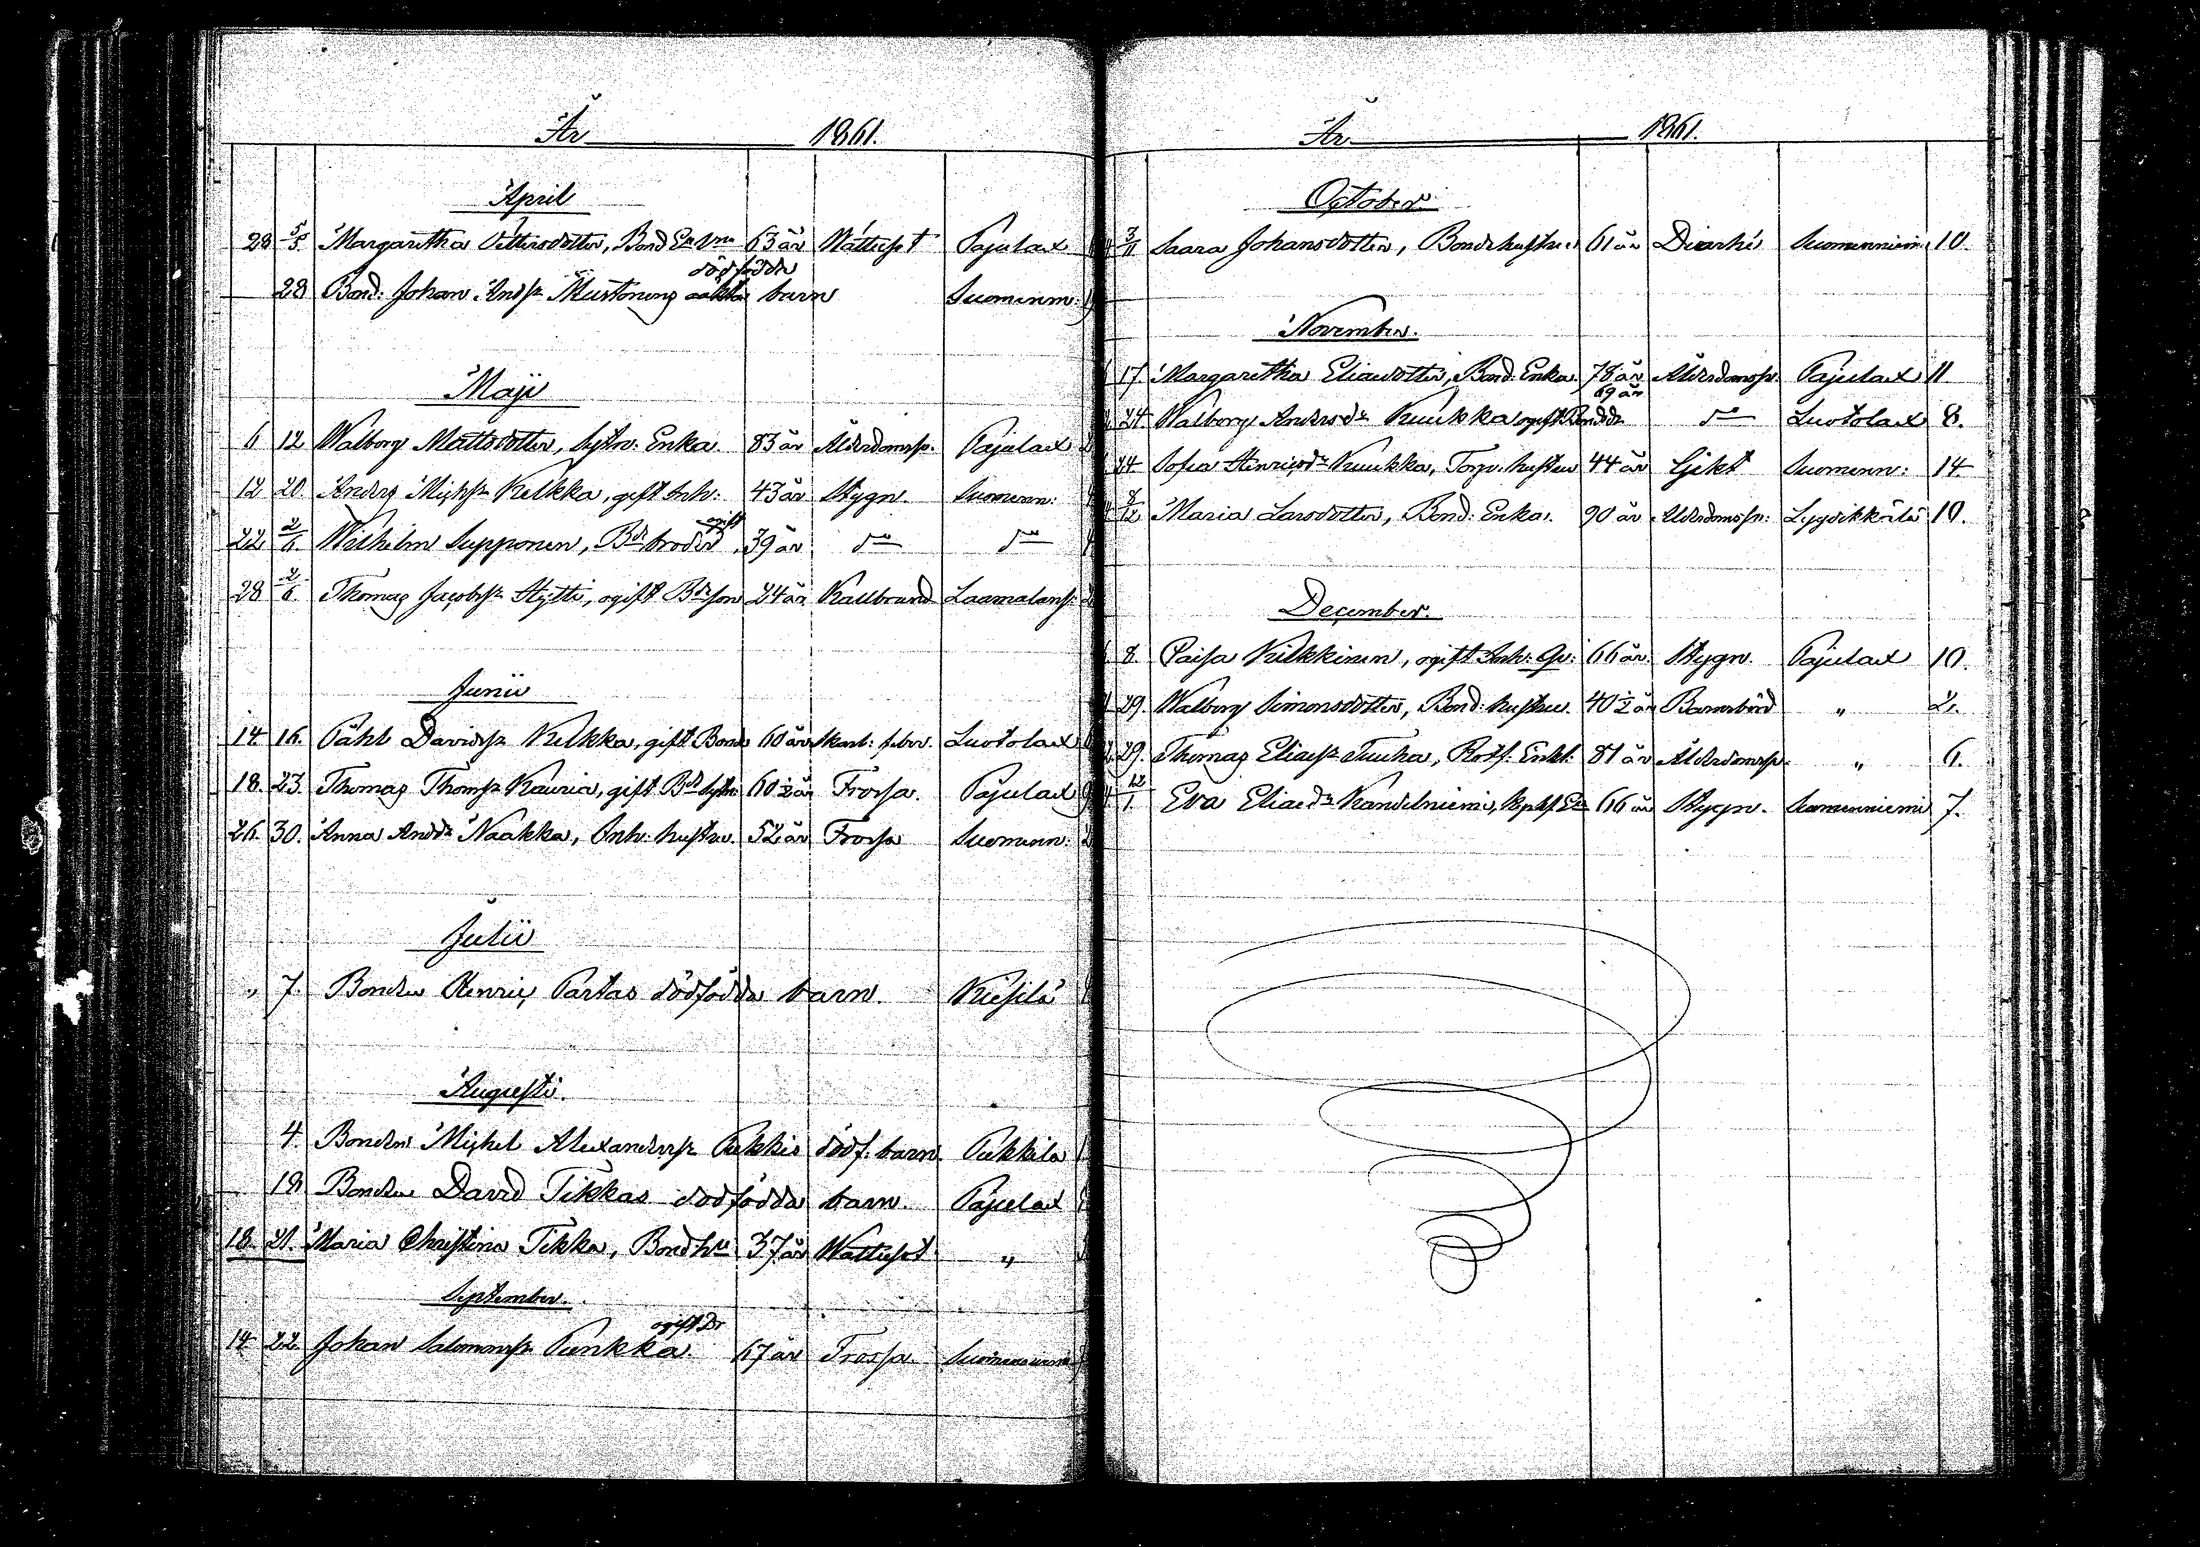 År 1861.
April
28 5/5. Margaretha Pettersdotter, Bond Enkan 63 år Wattusot Pajulax
dödfödde
28 Bond: Johan Andsr Mustonens barn Suominm:
Maji
6 12 Walborg Mattsdotter, Sytn: Enka. 83 år Ålderdomssv. Pajulax
12 20. Anders Michsr Kelkka, gift Inh: 43 år Stygn. Suomenn:
ogift
22 2/6. Wilhelm Supponen, Bds broder 39 år do do
28 2/6. Thomas Jacobsr Hytti, ogift Bdeson 24 år Kallbrand Laamalans:
Junii
14 16. Påhl Davidsr Kelkka, gift Bonde 60 år Skarl: febr. Luotolax
18. 23. Thomas Thomsr Kauria, gift Bds Sytn 60 1/2 år Frossa. Pajulax
26. 30. Anna Andsdr Naakka, Inh: hustru. 52 år Frossa Suomenn:
Julii
" 7. Bonden Henric Partas dödfödda barn. Kiesilä
Augusti.
4. Bonden Michel Alexandersr Pukkis dödf. barn. Pukkila
18 Bonden David Tikkas dödfödda barn. Pajulax
18. 21. Maria Christina Tikka, Bond hu 37 år Wattusot "
September.
ogift Dr
14 22. Johan Salomonsr Punkka. 67 år Frossa. Suomenniemi
År 1861.
October.
3/11 Saara Johansdotter, Bondehustru 61 år Diarhé Suomenniem: 10.
November.
17. Margaretha Eliaedotter, Bond: Enka. 78 år Ålderdomssv. Pajulax 11
69 år
24. Walborg Andersdr Kuukka ogift Bondedr do Luotolax 8.
24 Sofia Henricsdr Kuukka, Torp. hustru 44 år Gikt Suomenn: 14
8/12 Maria Larsdotter, Bond: Enka. 90 år Ålderdomssv: Lyydikkälä 10.
December.
8. Caisa Kilkkinen, ogift Inh: Qv: 66 år. Stygn. Pajulax 10.
29. Walborg Simonsdotter, Bond: hustru. 40 1/2 år Barnsbörd " 2.
29. Thomas Eliaesr Tuuha, Rotf. Enkl: 81 år Ålderdomssv. " 6.
12/1. Eva Eliaedr Kandelniemi, En 66 år Stygn. Suomenniemi 7.